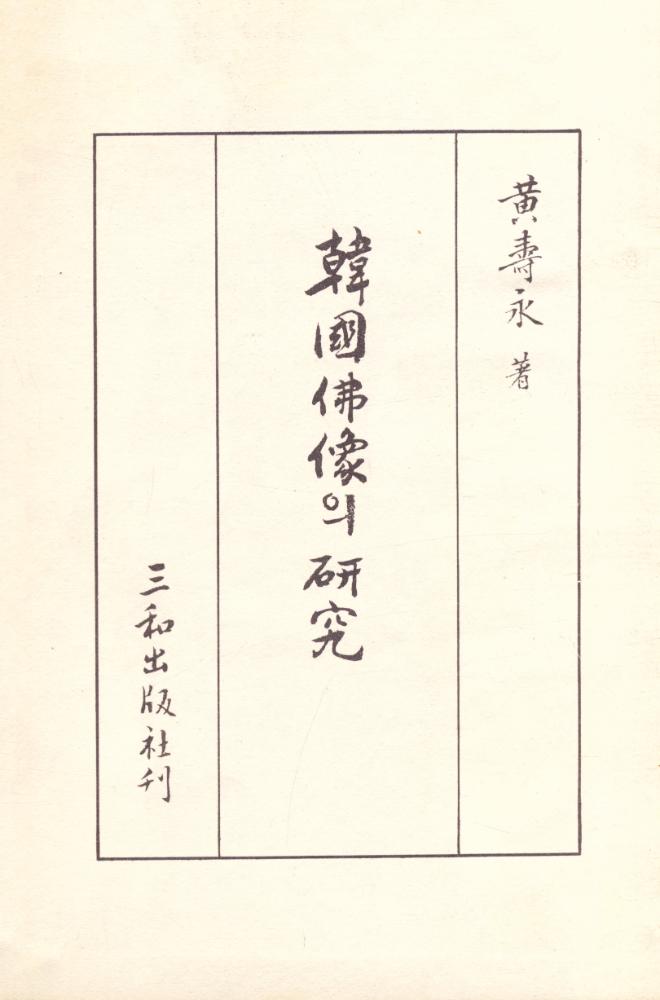 黃壽永 著
韓國佛像의 硏究
三和出版社刊